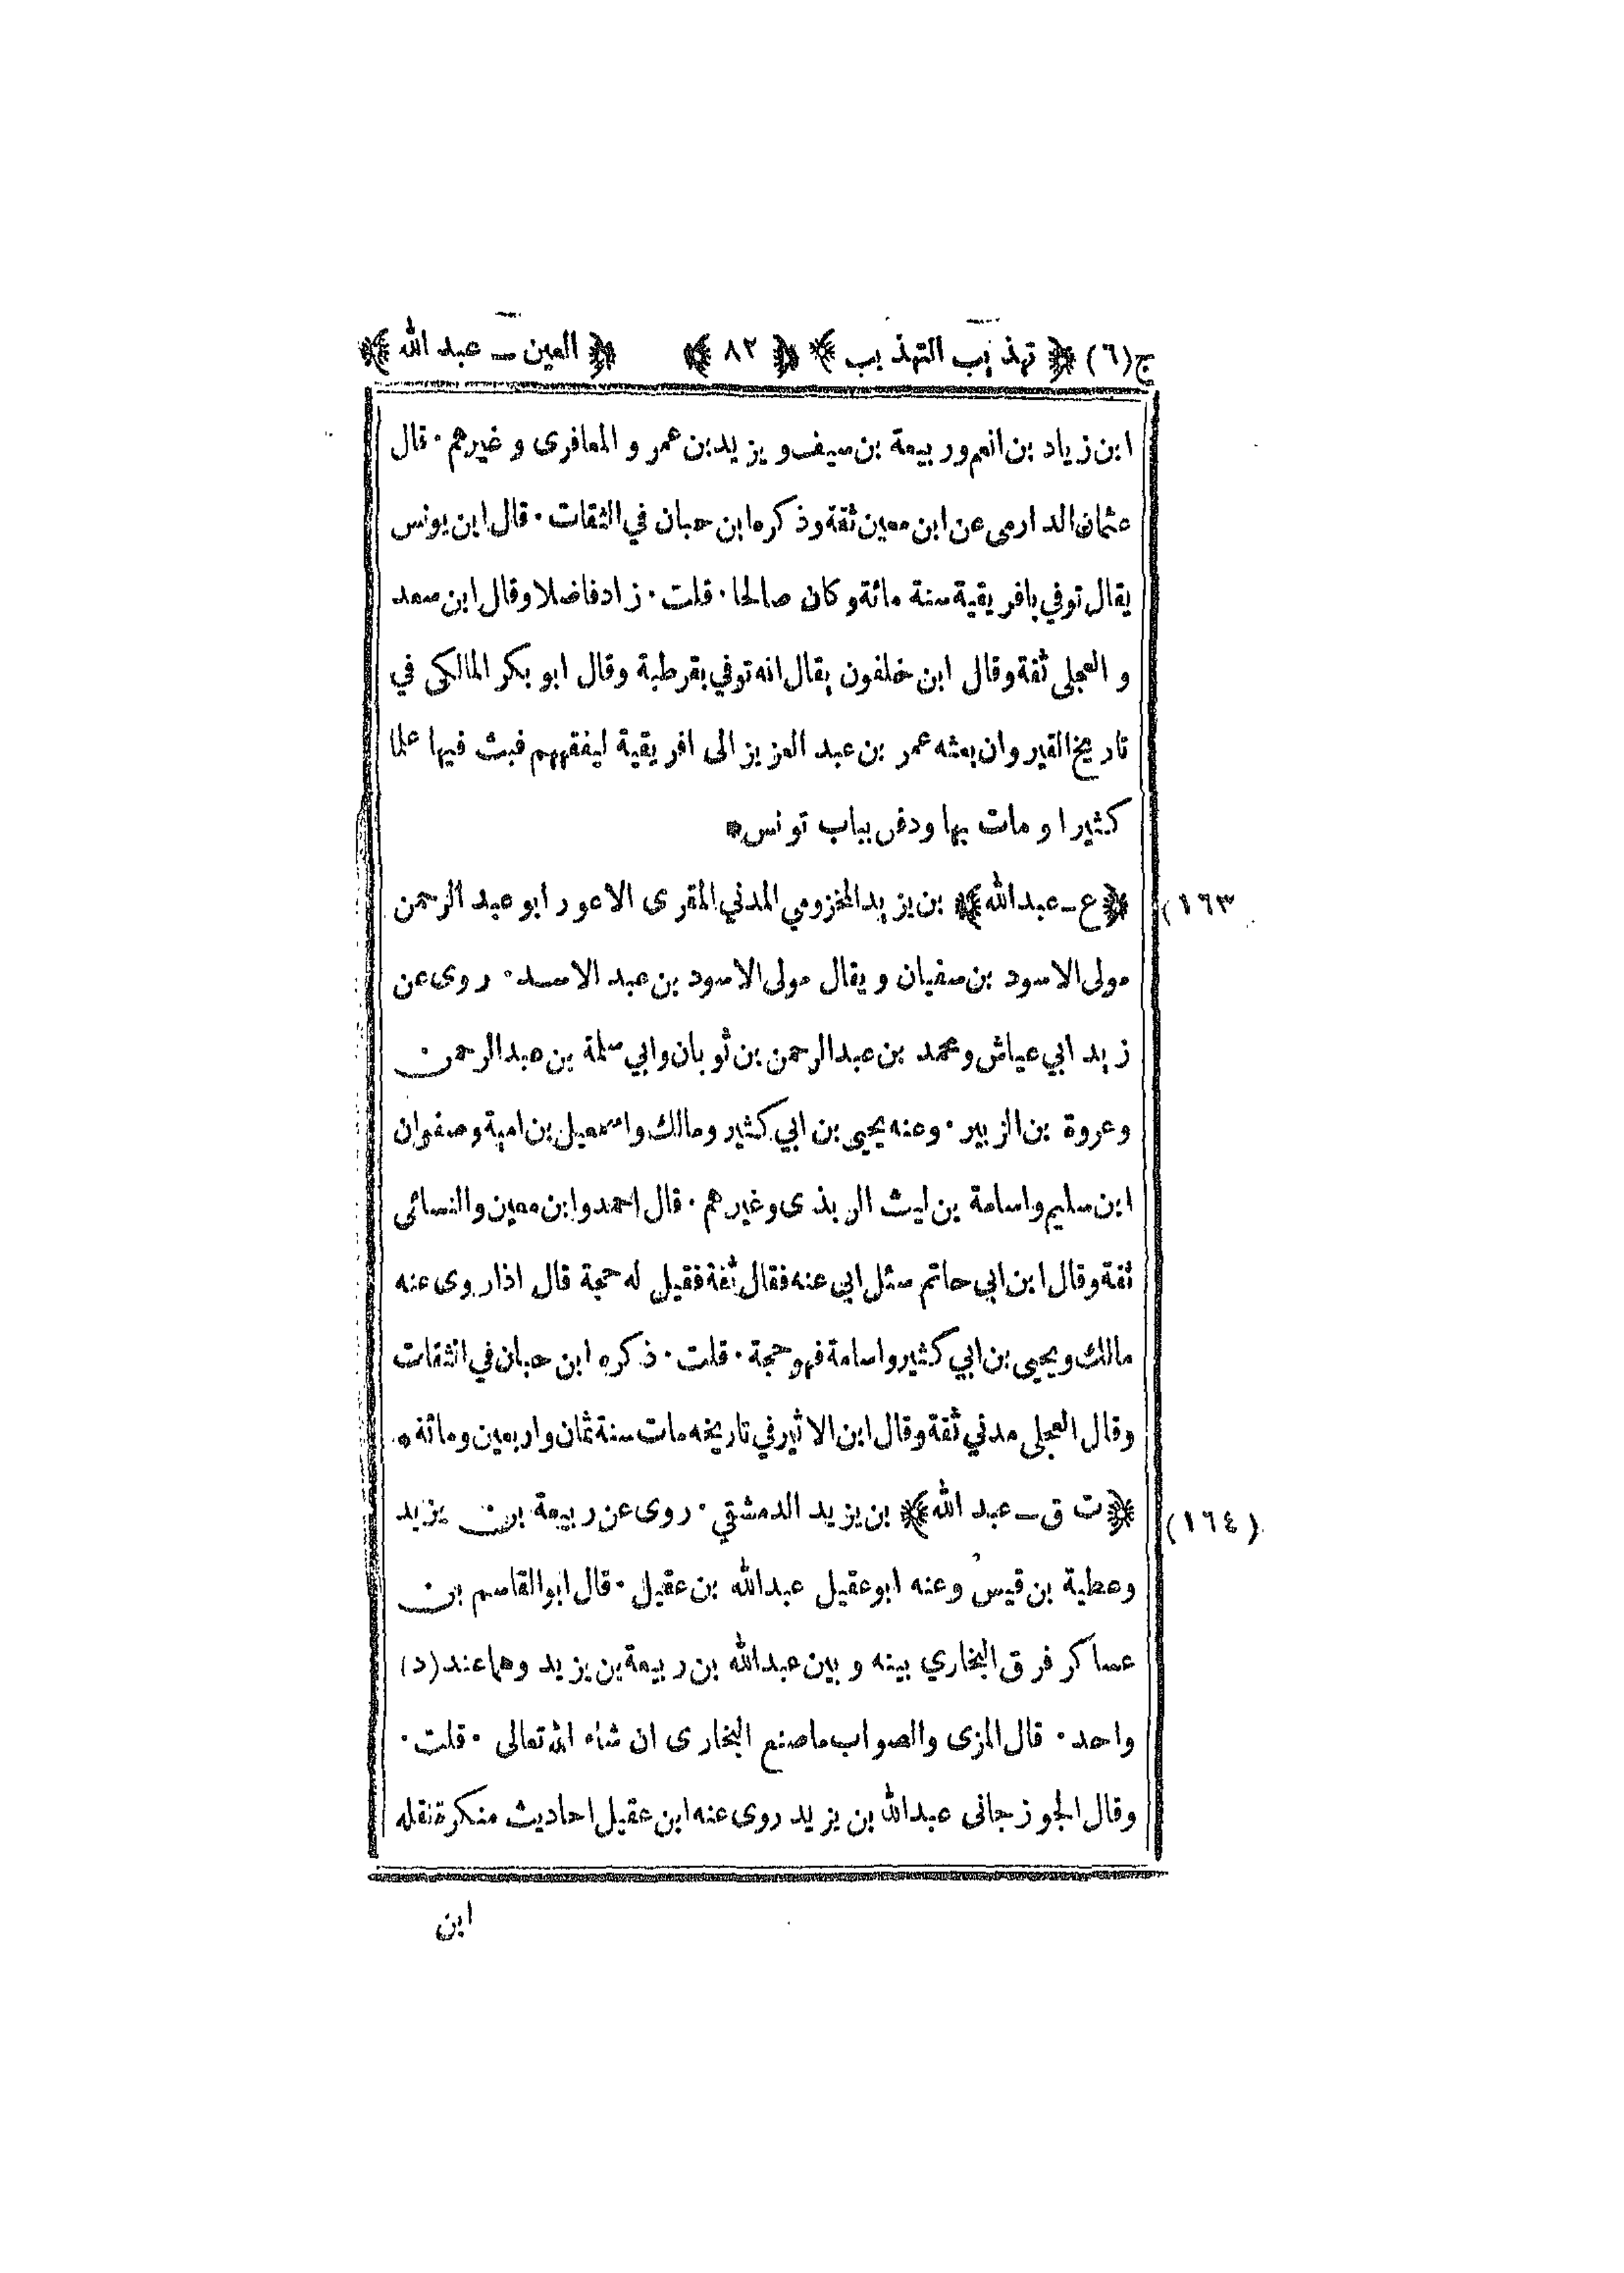 ج(٦) ﴿تهذيب التهذيب﴾ ﴿٨٢﴾ ﴿العين ـ عبد الله﴾
ابن زياد بن انعم وربيعة بن سيف ويزيد بن عمرو المعافرى وغيرهم ٠ قال
عثمان الدارمى عن ابن معين ثقة وذكره ابن حبان في الثقات ٠ قال ابن يونس
يقال توفي بافريقية سنة مائة وكان صالحا ٠ قلت ٠ زاد فاضلا وقال ابن سعد
والعجلى ثقة وقال ابن خلفون يقال انه توفي بقرطبة وقال ابو بكر المالكى في
تاريخ القيروان بعثه عمر بن عبد العزيز الى افريقية ليفقههم فبث فيها علما
كثيرا ومات بها ودفن بباب تونس *
(١٦٣ ﴿ع ـ عبد الله﴾ بن يزيد المخزومي المدني المقرى الاعور ابو عبد الرحمن
مولى الاسود بن سفيان ويقال مولى الاسود بن عبد الاسد ٠ روى عن
زيد ابي عياش ومحمد بن عبد الرحمن بن ثوبان وابي سلمة بن عبد الرحمن
وعروة بن الزبير ٠ وعنه يحيى بن ابي كثير ومالك واسمعيل بن امية وصفوان
ابن سليم واسامة بن ليث الربذى وغيرهم ٠ قال احمد وابن معين والنسائى
ثقة وقال ابن ابي حاتم سئل ابي عنه فقال ثقة فقيل له حجة قال اذا روى عنه
مالك ويحيى بن ابي كثير واسامة فهو حجة ٠ قلت ٠ ذكره ابن حبان في الثقات
وقال العجلى مدني ثقة وقال ابن الاثير في تاريخه مات سنة ثمان واربعين ومائه *
(١٦٤) ﴿ت ق ـ عبد الله﴾ بن يزيد الدمشقي ٠ روى عن ربيعة بن يزيد
وعطية بن قيس وعنه ابو عقيل عبد الله بن عقيل ٠ قال ابو القاسم بن
عساكر فرق البخاري بينه وبين عبد الله بن ربيعة بن يزيد وهما عند (د)
واحد ٠ قال المزى والصواب ما صنع البخارى ان شاء الله تعالى ٠ قلت ٠
وقال الجوزجانى عبد الله بن يزيد روى عنه ابن عقيل احاديث منكرة نقله
ابن